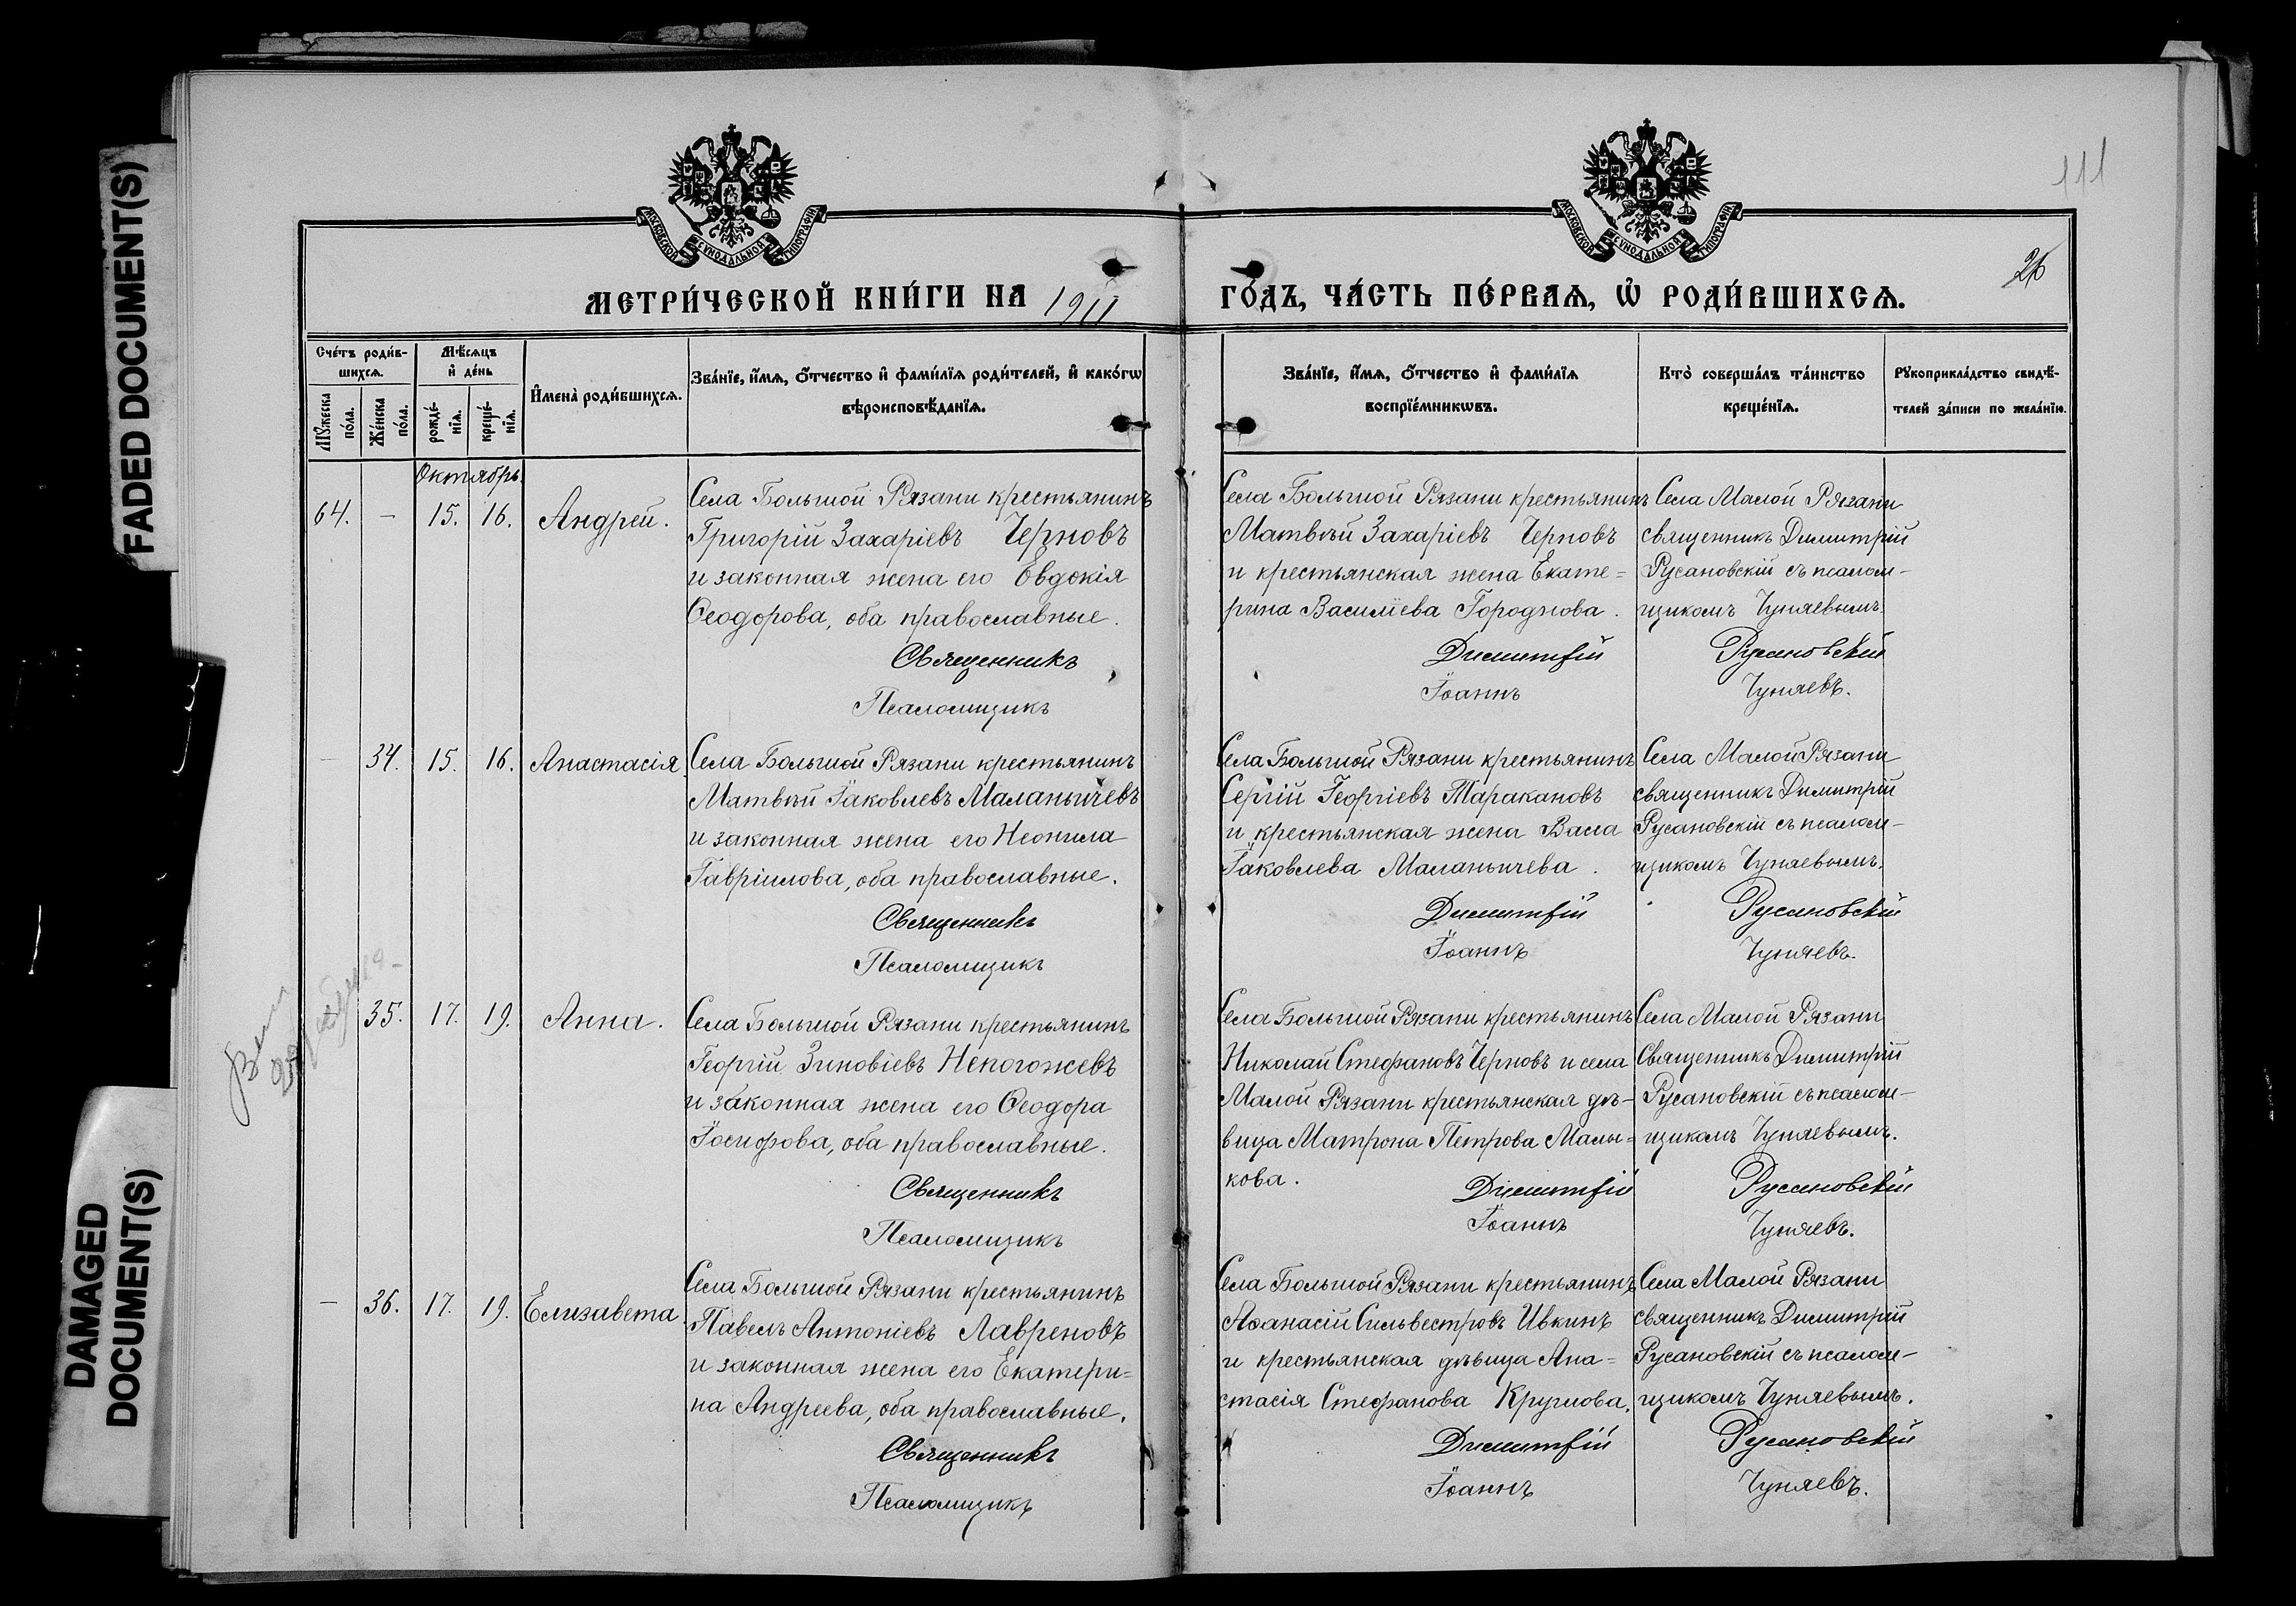 FADED DOCUMENT(S)
DAMAGED
DOCUMENT(S)
111
26
МОСКОВСКОЙ СѴНОДАЛЬНОЙ ТИПОГРАФІИ
МОСКОВСКОЙ СѴНОДАЛЬНОЙ ТИПОГРАФІИ
МЕТРИ́ЧЕСКОЙ КНИ́ГИ НА 1911
ГО́ДЪ, ЧА́СТЬ ПЕ́РВАѦ, Ѡ҆ РОДИ́ВШИХСѦ.
Сче́тъ роди́в-
шихсѧ.
Мꙋ́жеска
по́ла.
Же́нска
по́ла.
Мѣ́сѧцъ
и҆ де́нь
рожде́-
нїѧ.
креще́-
нїѧ.
И҆мена̀ роди́вшихсѧ.
Зва́нїе, и҆́мѧ, ѻ҆́тчество и҆ фами́лїѧ роди́телей, и҆ како́гѡ
вѣроисповѣ́данїѧ.
Зва́нїе, и҆́мѧ, ѻ҆́тчество и҆ фами́лїѧ
воспрїе́мникѡвъ.
Кто̀ соверша́лъ та́инство
креще́нїѧ.
Рꙋкоприкла́дство свидѣ́-
телей за́писи по жела́нїю.
Октябрь.
64. — 15. 16. Андрей.
Села Большой Рязани крестьянинъ
Григорій Захаріевъ Черновъ
и законная жена его Евдокія
Ѳеодорова, оба православные.
Священникъ
Псаломщикъ
Села Большой Рязани крестьянинъ
Матвѣй Захаріевъ Черновъ
и крестьянская жена Екате=
рина Василіева Городнова.
Димитрій
Іоаннъ
Села Малой Рязани
священникъ Димитрій
Русановскій съ псалом-
щикомъ Чуняевымъ.
Русановскій
Чуняевъ.
— 34. 15. 16. Анастасія.
Села Большой Рязани крестьянинъ
Матвѣй Іаковлевъ Маланьичевъ
и законная жена его Неонила
Гавріилова, оба православные.
Священникъ
Псаломщикъ
Села Большой Рязани крестьянинъ
Сергій Георгіевъ Таракановъ
и крестьянская жена Васса
Іаковлева Маланьичева.
Димитрій
Іоаннъ
Села Малой Рязани
священникъ Димитрій
Русановскій съ псалом-
щикомъ Чуняевымъ.
Русановскій
Чуняевъ.
35. 17. 19. Анна.
Села Большой Рязани крестьянинъ
Георгій Зиновіевъ Непогожевъ
и законная жена его Ѳеодора
Іосифова, оба православные.
Священникъ
Псаломщикъ
Села Большой Рязани крестьянинъ
Николай Стефановъ Черновъ и села
Малой Рязани крестьянская дѣ-
вица Матрона Петрова Малы=
кова.
Димитрій
Іоаннъ
Села Малой Рязани
Священникъ Димитрій
Русановскій съ псалом-
щикомъ Чуняевымъ.
Русановскій
Чуняевъ.
— 36. 17. 19. Елизавета.
Села Большой Рязани крестьянинъ
Павелъ Антоніевъ Лавреновъ
и законная жена его Екатери=
на Андреева, оба православные.
Священникъ
Псаломщикъ
Села Большой Рязани крестьянинъ
Аѳанасій Сильвестровъ Ивкинъ
и крестьянская дѣвица Ана=
стасія Стефанова Круглова.
Димитрій
Іоаннъ
Села Малой Рязани
священникъ Димитрій
Русановскій съ псалом-
щикомъ Чуняевымъ.
Русановскій
Чуняевъ.